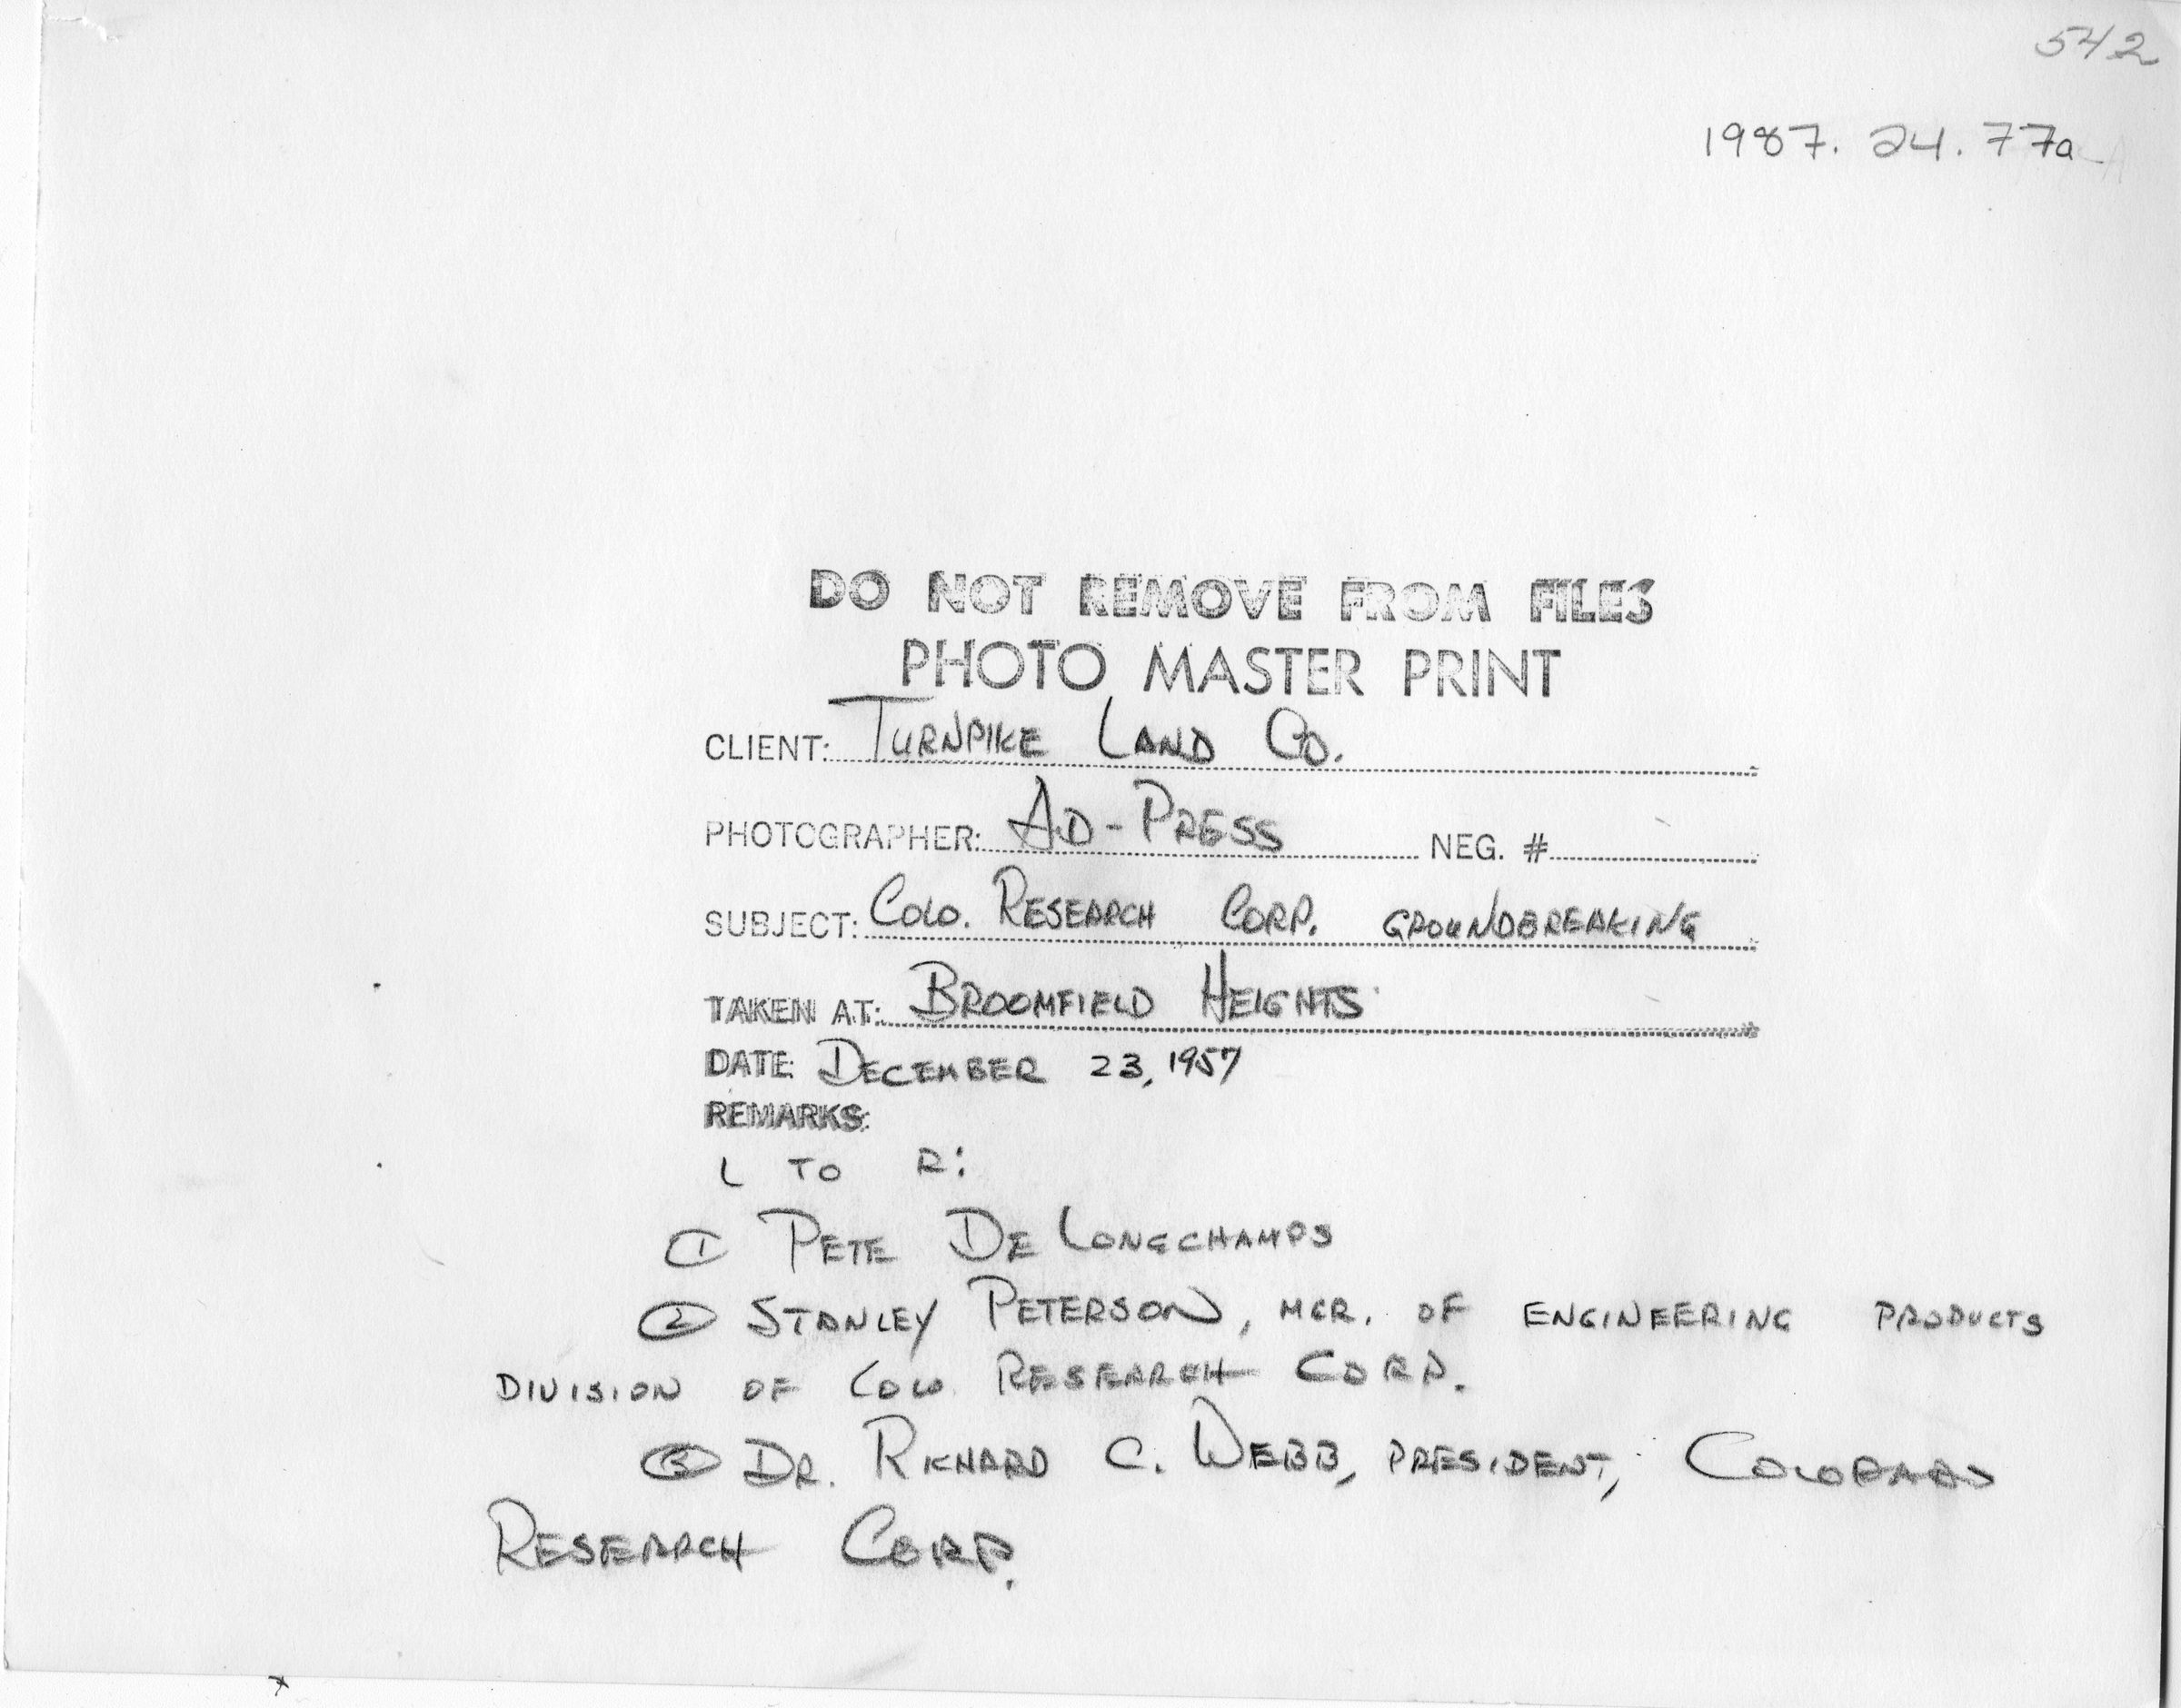 542
1987. 24. 77a
DO NOT REMOVE FROM FILES
PHOTO MASTER PRINT
CLIENT: TURNPIKE LAND CO.
PHOTOGRAPHER: AD-PRESS NEG. #
SUBJECT: COLO. RESEARCH CORP. GROUNDBREAKING
TAKEN AT: BROOMFIELD HEIGHTS
DATE: DECEMBER 23, 1957
REMARKS:
L TO R:
① PETE DE LONGCHAMPS
② STANLEY PETERSON, MGR. OF ENGINEERING PRODUCTS
DIVISION OF COLO. RESEARCH CORP.
③ DR. RICHARD C. WEBB, PRESIDENT, COLORADO
RESEARCH CORP.